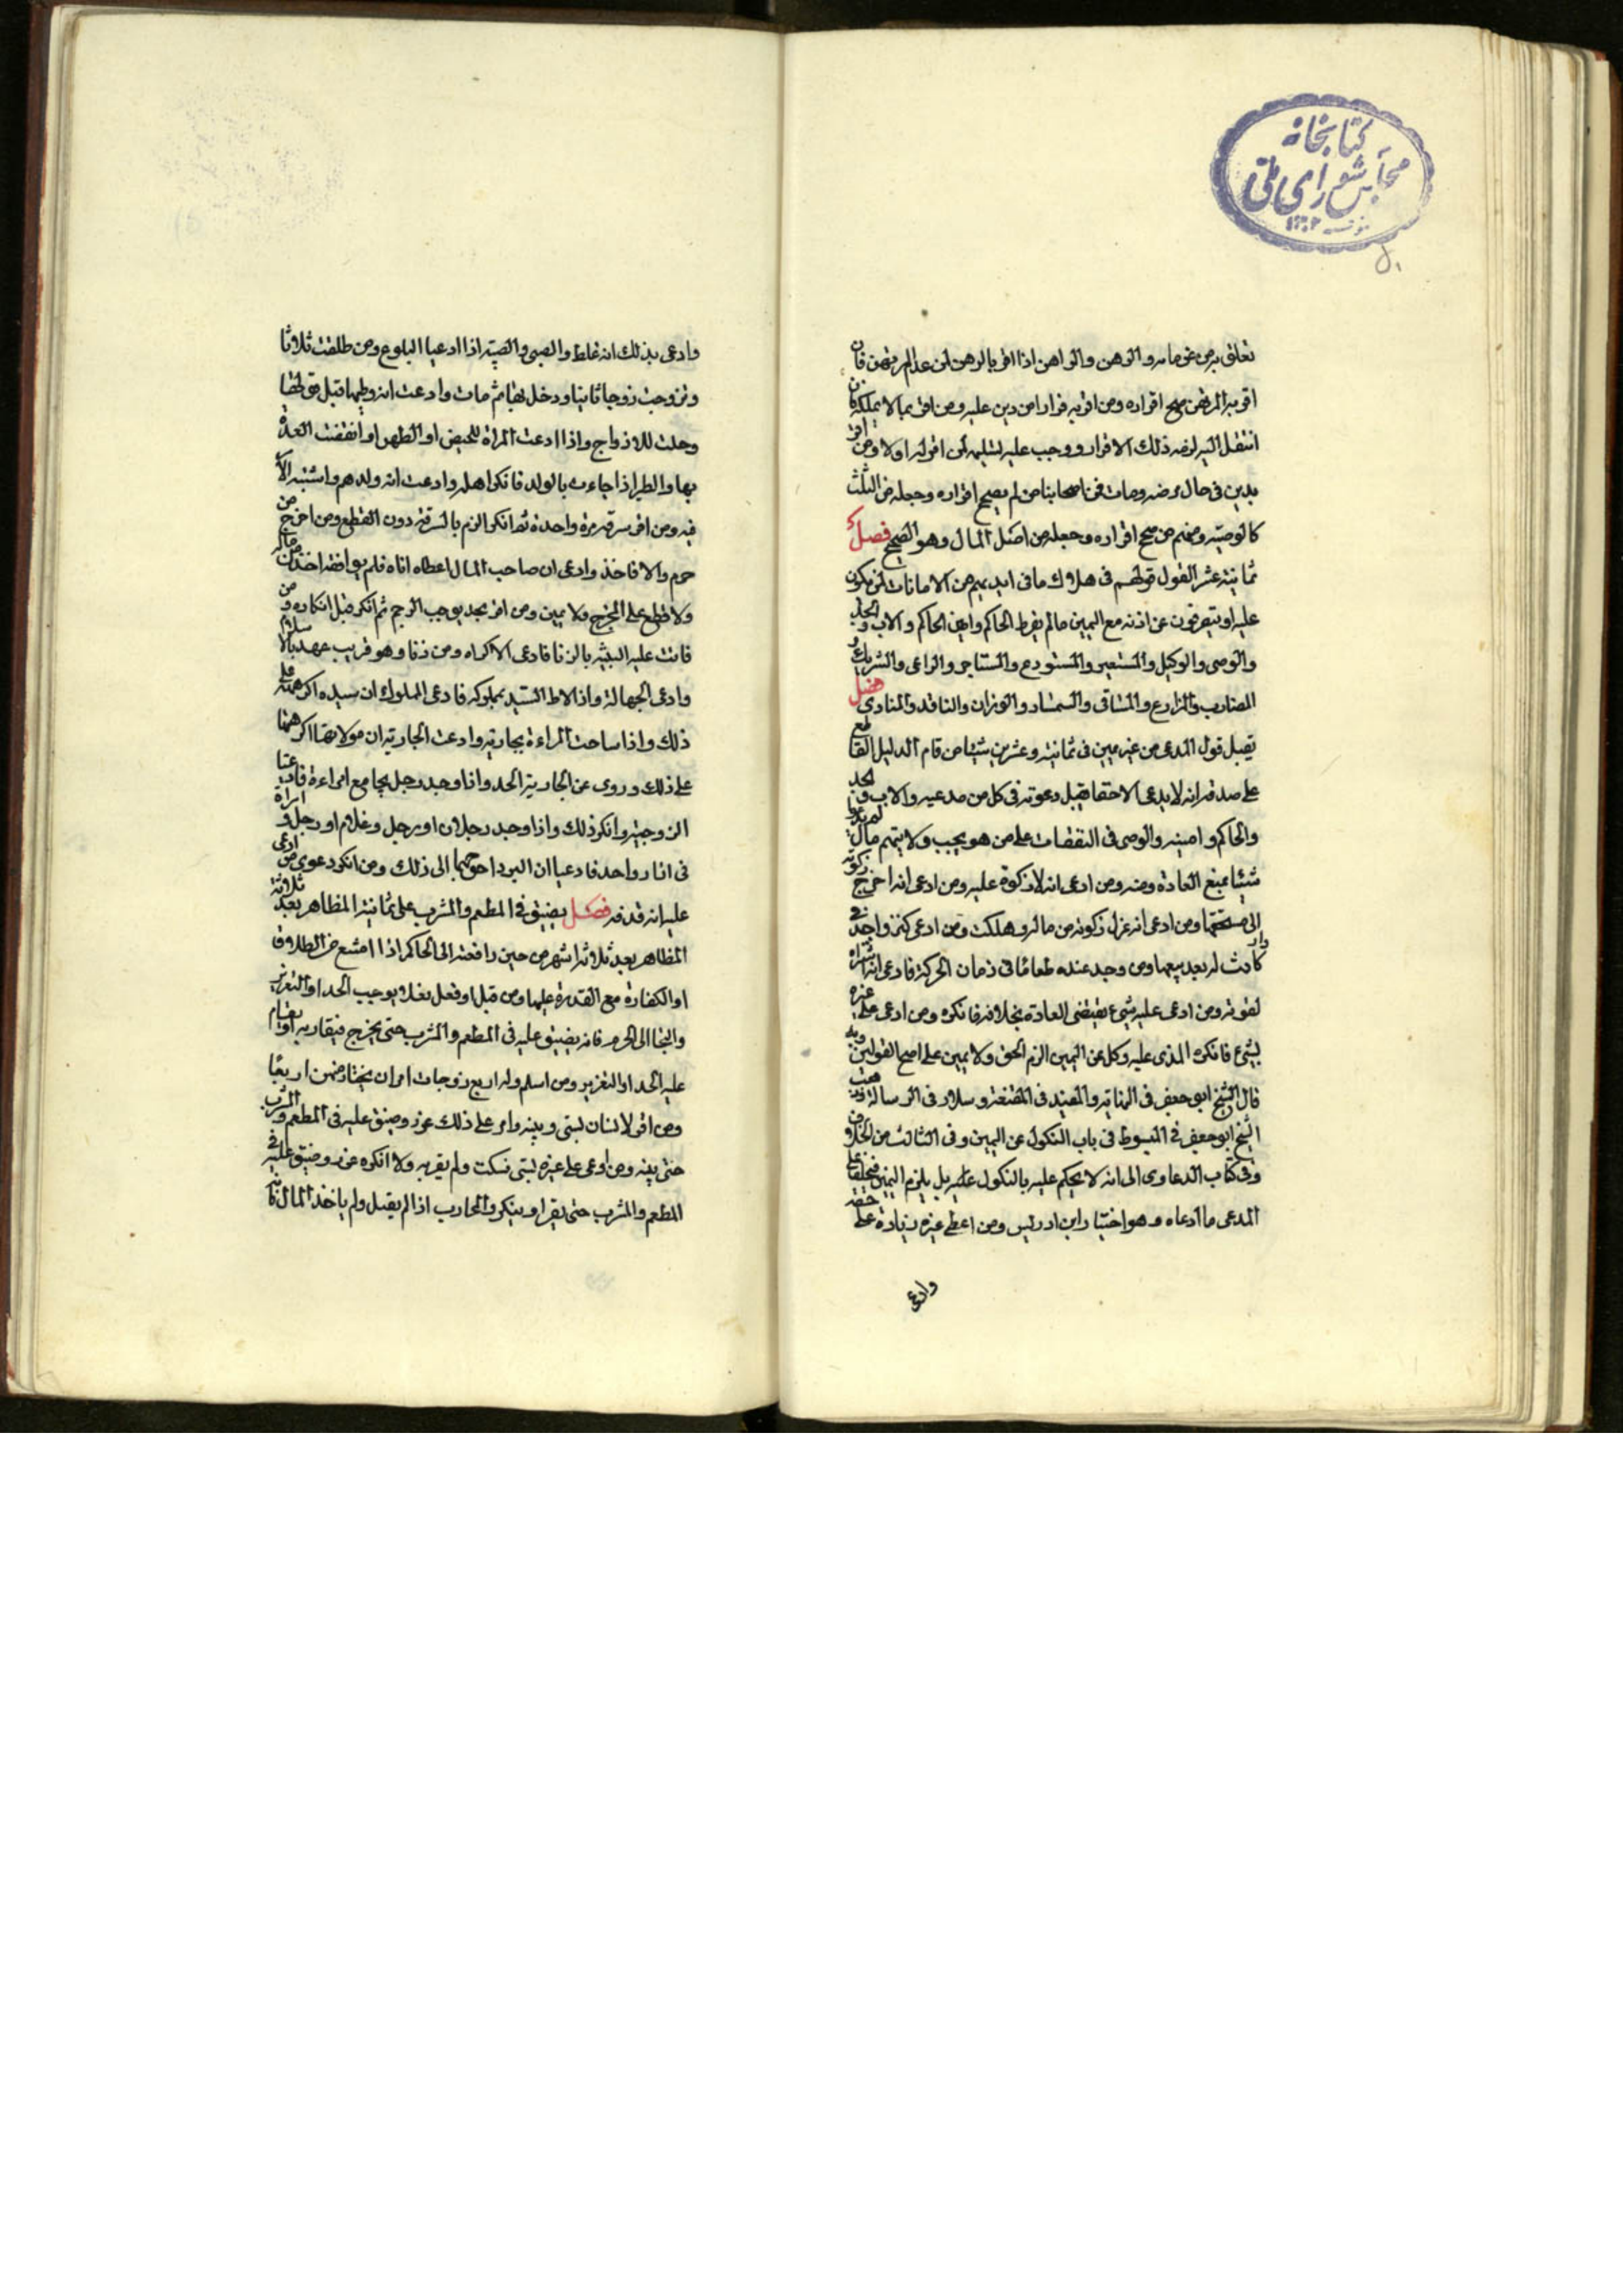 كتابخانه
مجلس شورای ملی
۵۱
تعلق به من غرمائه والرهن والراهن اذا اقر بالرهن لمن عدا المرتهن فان
اقر به المرتهن صح اقراره ومن اقر به فرارا من دين عليه ومن اقر بما لا يملكه فان
انتقل اليه لزمه ذلك الاقرار ووجب عليه تسليمه لمن اقر له اولا ومن اقر
بدين فى حال مرضه ومات فمن اصحابنا من لم يصحح اقراره وجعله من الثلث
كالوصية ومنهم من صحح اقراره وجعله من اصل المال وهو الصحيح فصل
ثمانية عشر القول قولهم فى هلاك ما فى ايديهم من الامانات لمن يكون
عليه او يتصرفون عن اذنه مع اليمين ما لم يفرط الحاكم وامين الحاكم والاب والجد
والوصى والوكيل والمستعير والمستودع والمستاجر والراعى والشريك و
المضارب والمزارع والمساقى والسمسار والوزان والناقد والمنادى فصل
يقبل قول المدعى من غير يمين فى ثمانية وعشرين شيئا من قام الدليل القاطع
على صدقه انه لا يدعى الا حقا فيقبل دعوته فى كل من صدعيه والاب والجد
والحاكم وامينه والوصى فى النفقات على من هو يجب ولا يتهم مال
شيئا بمنع العادة ومنه ومن ادعى انه لا زكوة عليه ومن ادعى انه اخرج زكوته
الى مستحقها ومن ادعى انه عزل زكوته من ماله وهلكت ومن ادعى كنزا وجد فى دار
كانت له بعد بيعها ومن وجد عنده طعاما فى زمان الحركة فادعى انه اشتراه
لقوته ومن ادعى عليه شيء يقتضى العادة بخلافه فانكره ومن ادعى على غيره
بشيء فانكره المدعى عليه ونكل عن اليمين الزم الحق ولا يمين على اصح القولين وبه
قال الشيخ ابو جعفر فى النهاية والمفيد فى المقنعة وسلار فى الرسالة وذهب
الشيخ ابو جعفر فى المبسوط فى باب النكول عن اليمين وفى الثالث من الخلاف
وفى كتاب الدعاوى الى انه لا يحكم عليه بالنكول عليه بل يلزم اليمين فيحلف على
المدعى ما ادعاه وهو اختيار ابن ادريس ومن اعطى غيره زيادة على حقه
وادعى
وادعى بذلك انه غلط والصبى والصبية اذا ادعيا البلوغ ومن طلقت ثلاثا
وتزوجت زوجا ثانيا ودخل بها ثم مات وادعت انه وطيها قبل قولها
وحلت للازواج واذا ادعت المراة للحيض او الطهر او انقضت العدة
بها والطير اذا جاءت بالولد فانكر اهله وادعت انه ولدهم واشتبه الامر
فيه ومن اقر سرقه مرة واحدة ثم انكر الزم بالسرقة دون القطع ومن اخرج من
حرم والا فاخذ وادعى ان صاحب المال اعطاه اياه فلم يوافقه اخذ من ماله
ولا قطع على المخرج ولا يمين ومن اقر بحد يوجب الرجم ثم انكر قبل انكاره و من
قامت عليه البينة بالزنا فادعى الاكراه ومن زنا وهو قريب عهد بالاسلام
وادعى الجهالة واذا لاط السيد بمملوكه فادعى المملوك ان سيده اكرهه على
ذلك واذا ساحت المراءة بجاريته وادعت الجارية ان مولاتها اكرهتها
على ذلك وروى عن الجارية الحد واذا وجد رجل يجامع امراءة فادعيا
الزوجية وانكر ذلك واذا وجد رجلان او رجل وغلام او رجل و امراة
فى ازار واحد فادعيا ان البرد احوجهما الى ذلك ومن انكر دعوى من ادعى
عليه انه قذفه فصل يضيق فى المطعم والمشرب على ثمانية المظاهر بعد ثلاثة
المظاهر بعد ثلاثة اشهر من حين رافعته الى الحاكم اذا امتنع من الطلاق
او الكفارة مع القدرة عليها ومن قتل او فعل فعلا يوجب الحد او التعزير
والتجا الى الحرم فانه يضيق عليه فى المطعم والمشرب حتى يخرج فيقاد به او يقام
عليه الحد او التعزير ومن اسلم وله اربع زوجات امر ان يختار منهن اربعا
ومن اقر لانسان بشى وبينه وامر على ذلك عزر وضيق عليه فى المطعم والمشرب
حتى يبينه ومن اوعى على غيره بشى فسكت ولم يقر به ولا انكره عزر وضيق عليه فى
المطعم والمشرب حتى يقر او ينكر والمحارب اذا لم يقتل ولم ياخذ المال فانه